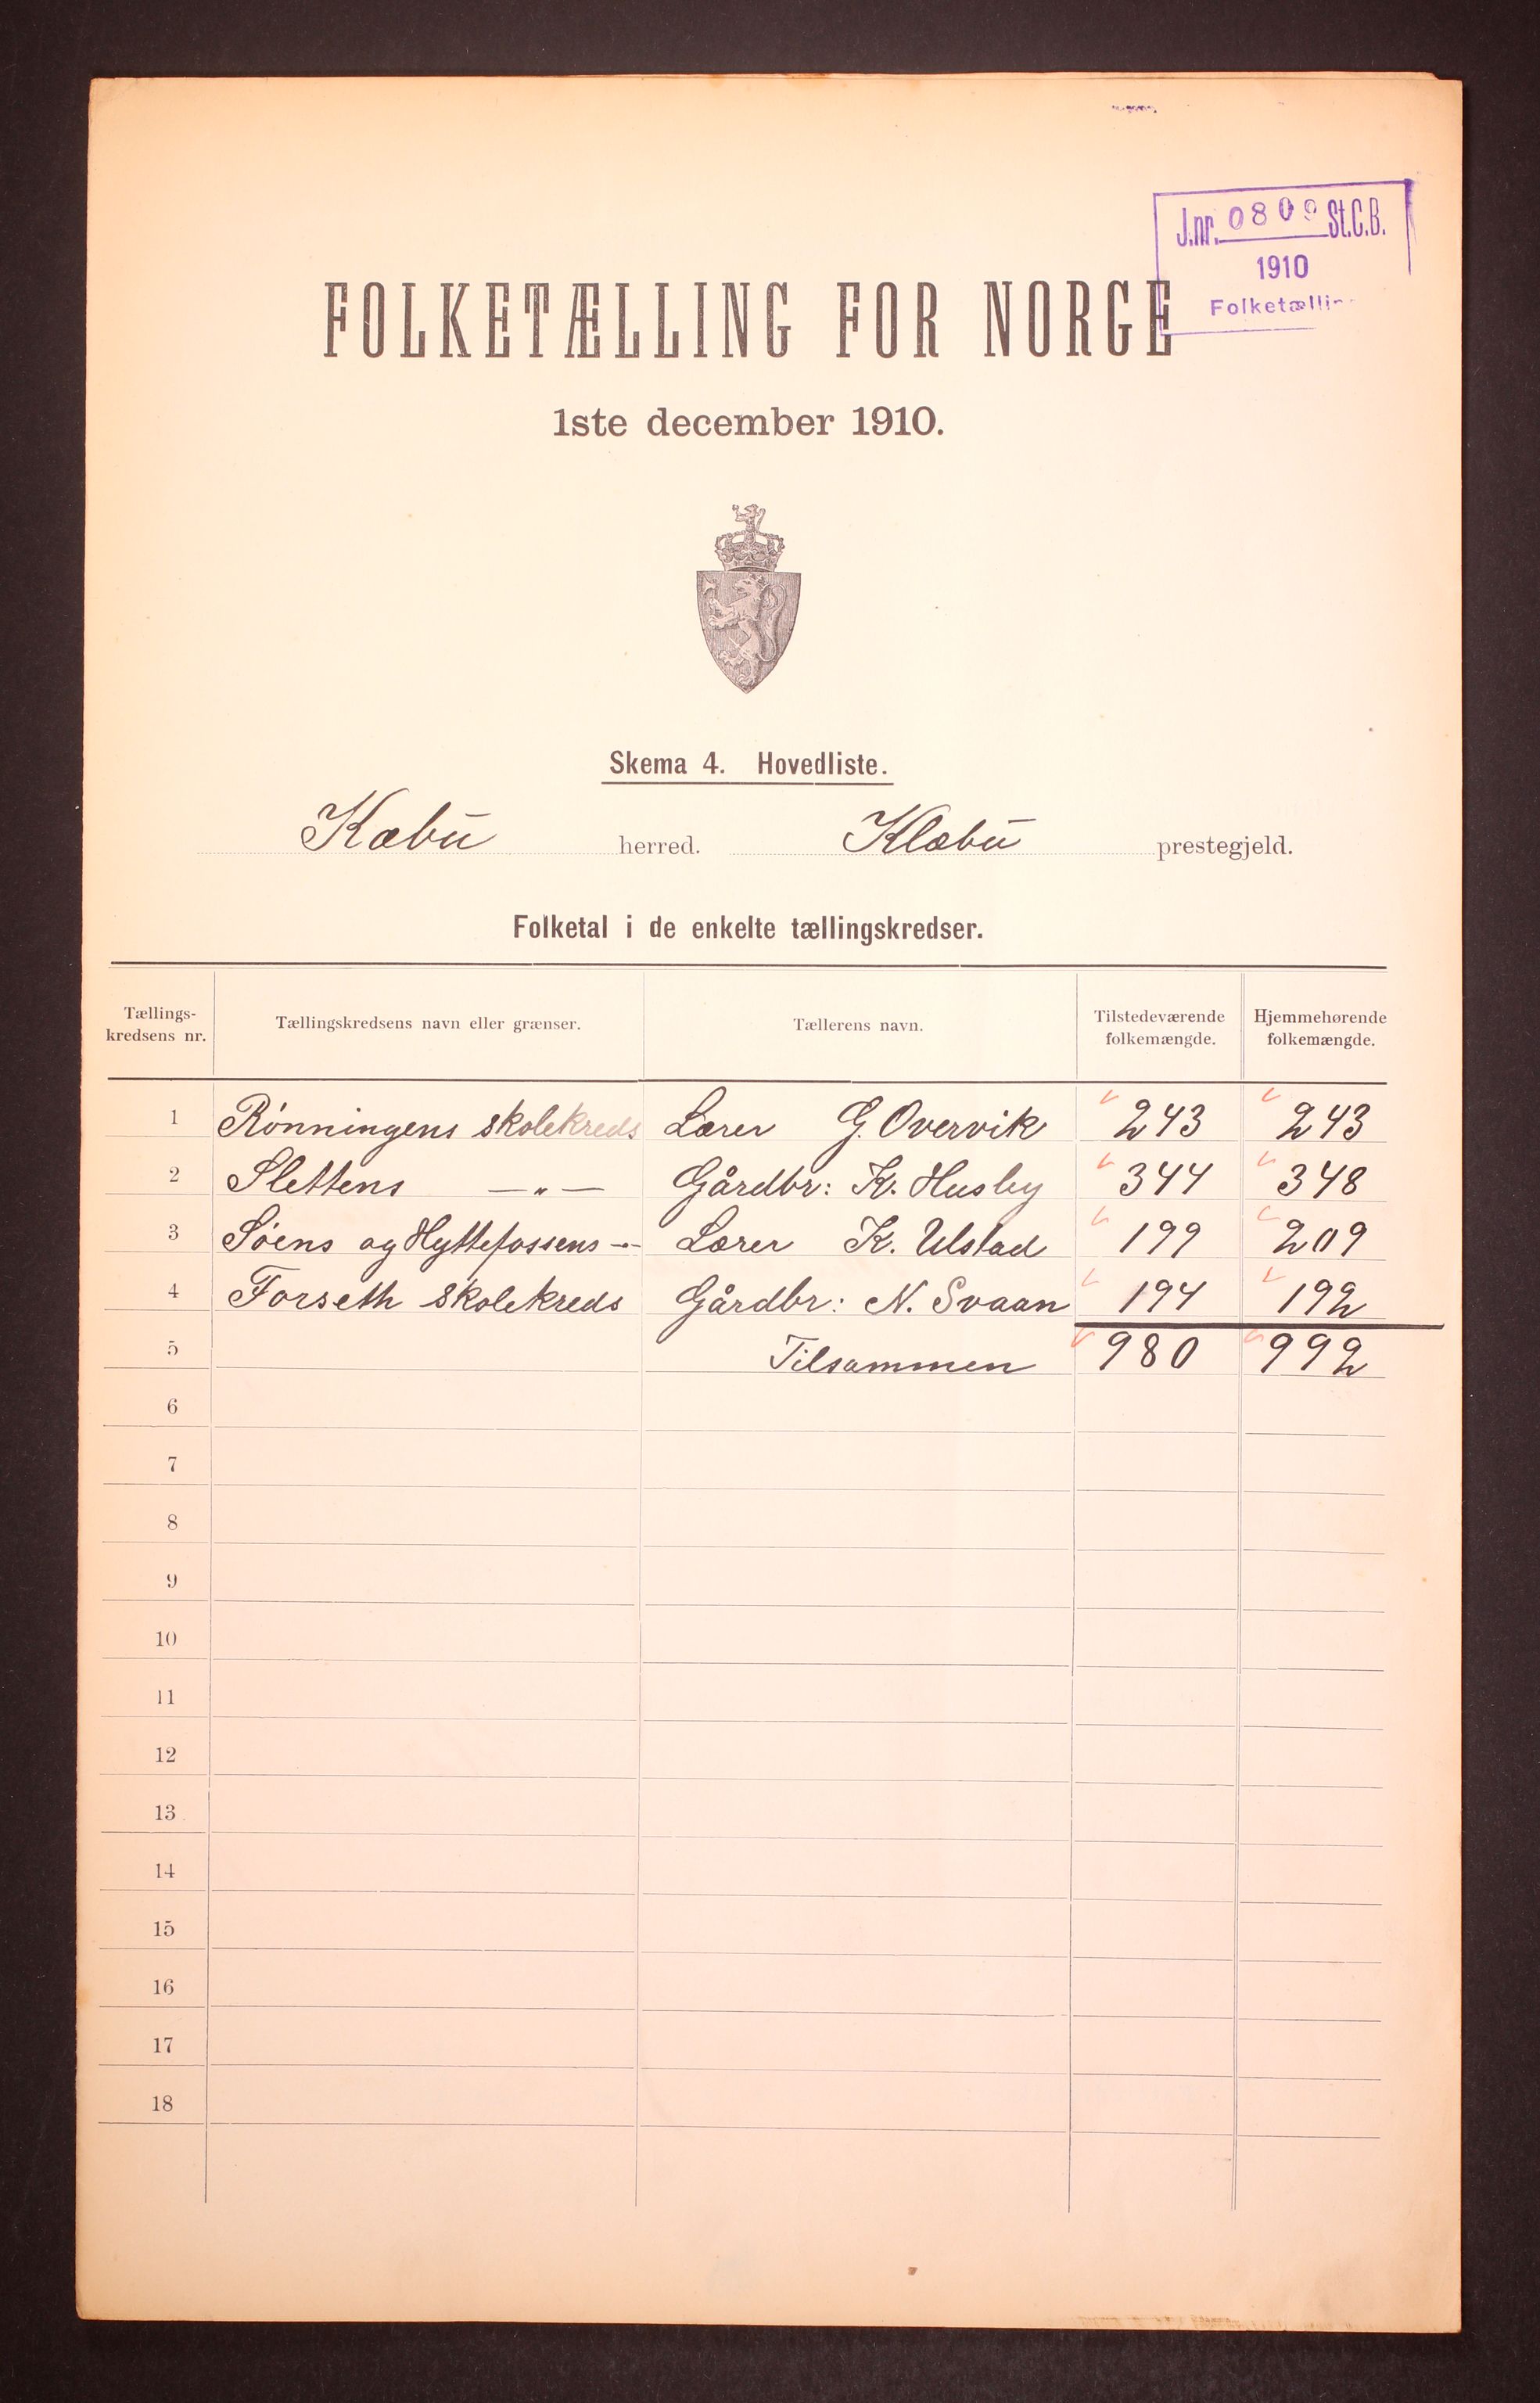 J.nr. 0809 St.C.B.
1910
Folketælling
FOLKETÆLLING FOR NORGE
1ste december 1910.
Skema 4. Hovedliste.
Kæbu herred. Klæbu prestegjeld.
Folketal i de enkelte tællingskredser.
Tællings-kredsens nr. Tællingskredsens navn eller grænser. Tællerens navn. Tilstedeværende folkemængde. Hjemmehørende folkemængde.
1 Rónningens skolekreds Lærer G. Overvik 243 243
2 Slettens —„— Gårdbr: K. Husby 344 348
3 Sóens og Hyttefossens -„- Lærer K. Ulstad 199 209
4 Forseth skolekreds Gårdbr: N. Svaan 194 192
5 Tilsammen 980 992
6
7
8
9
10
11
12
13
14
15
16
17
18